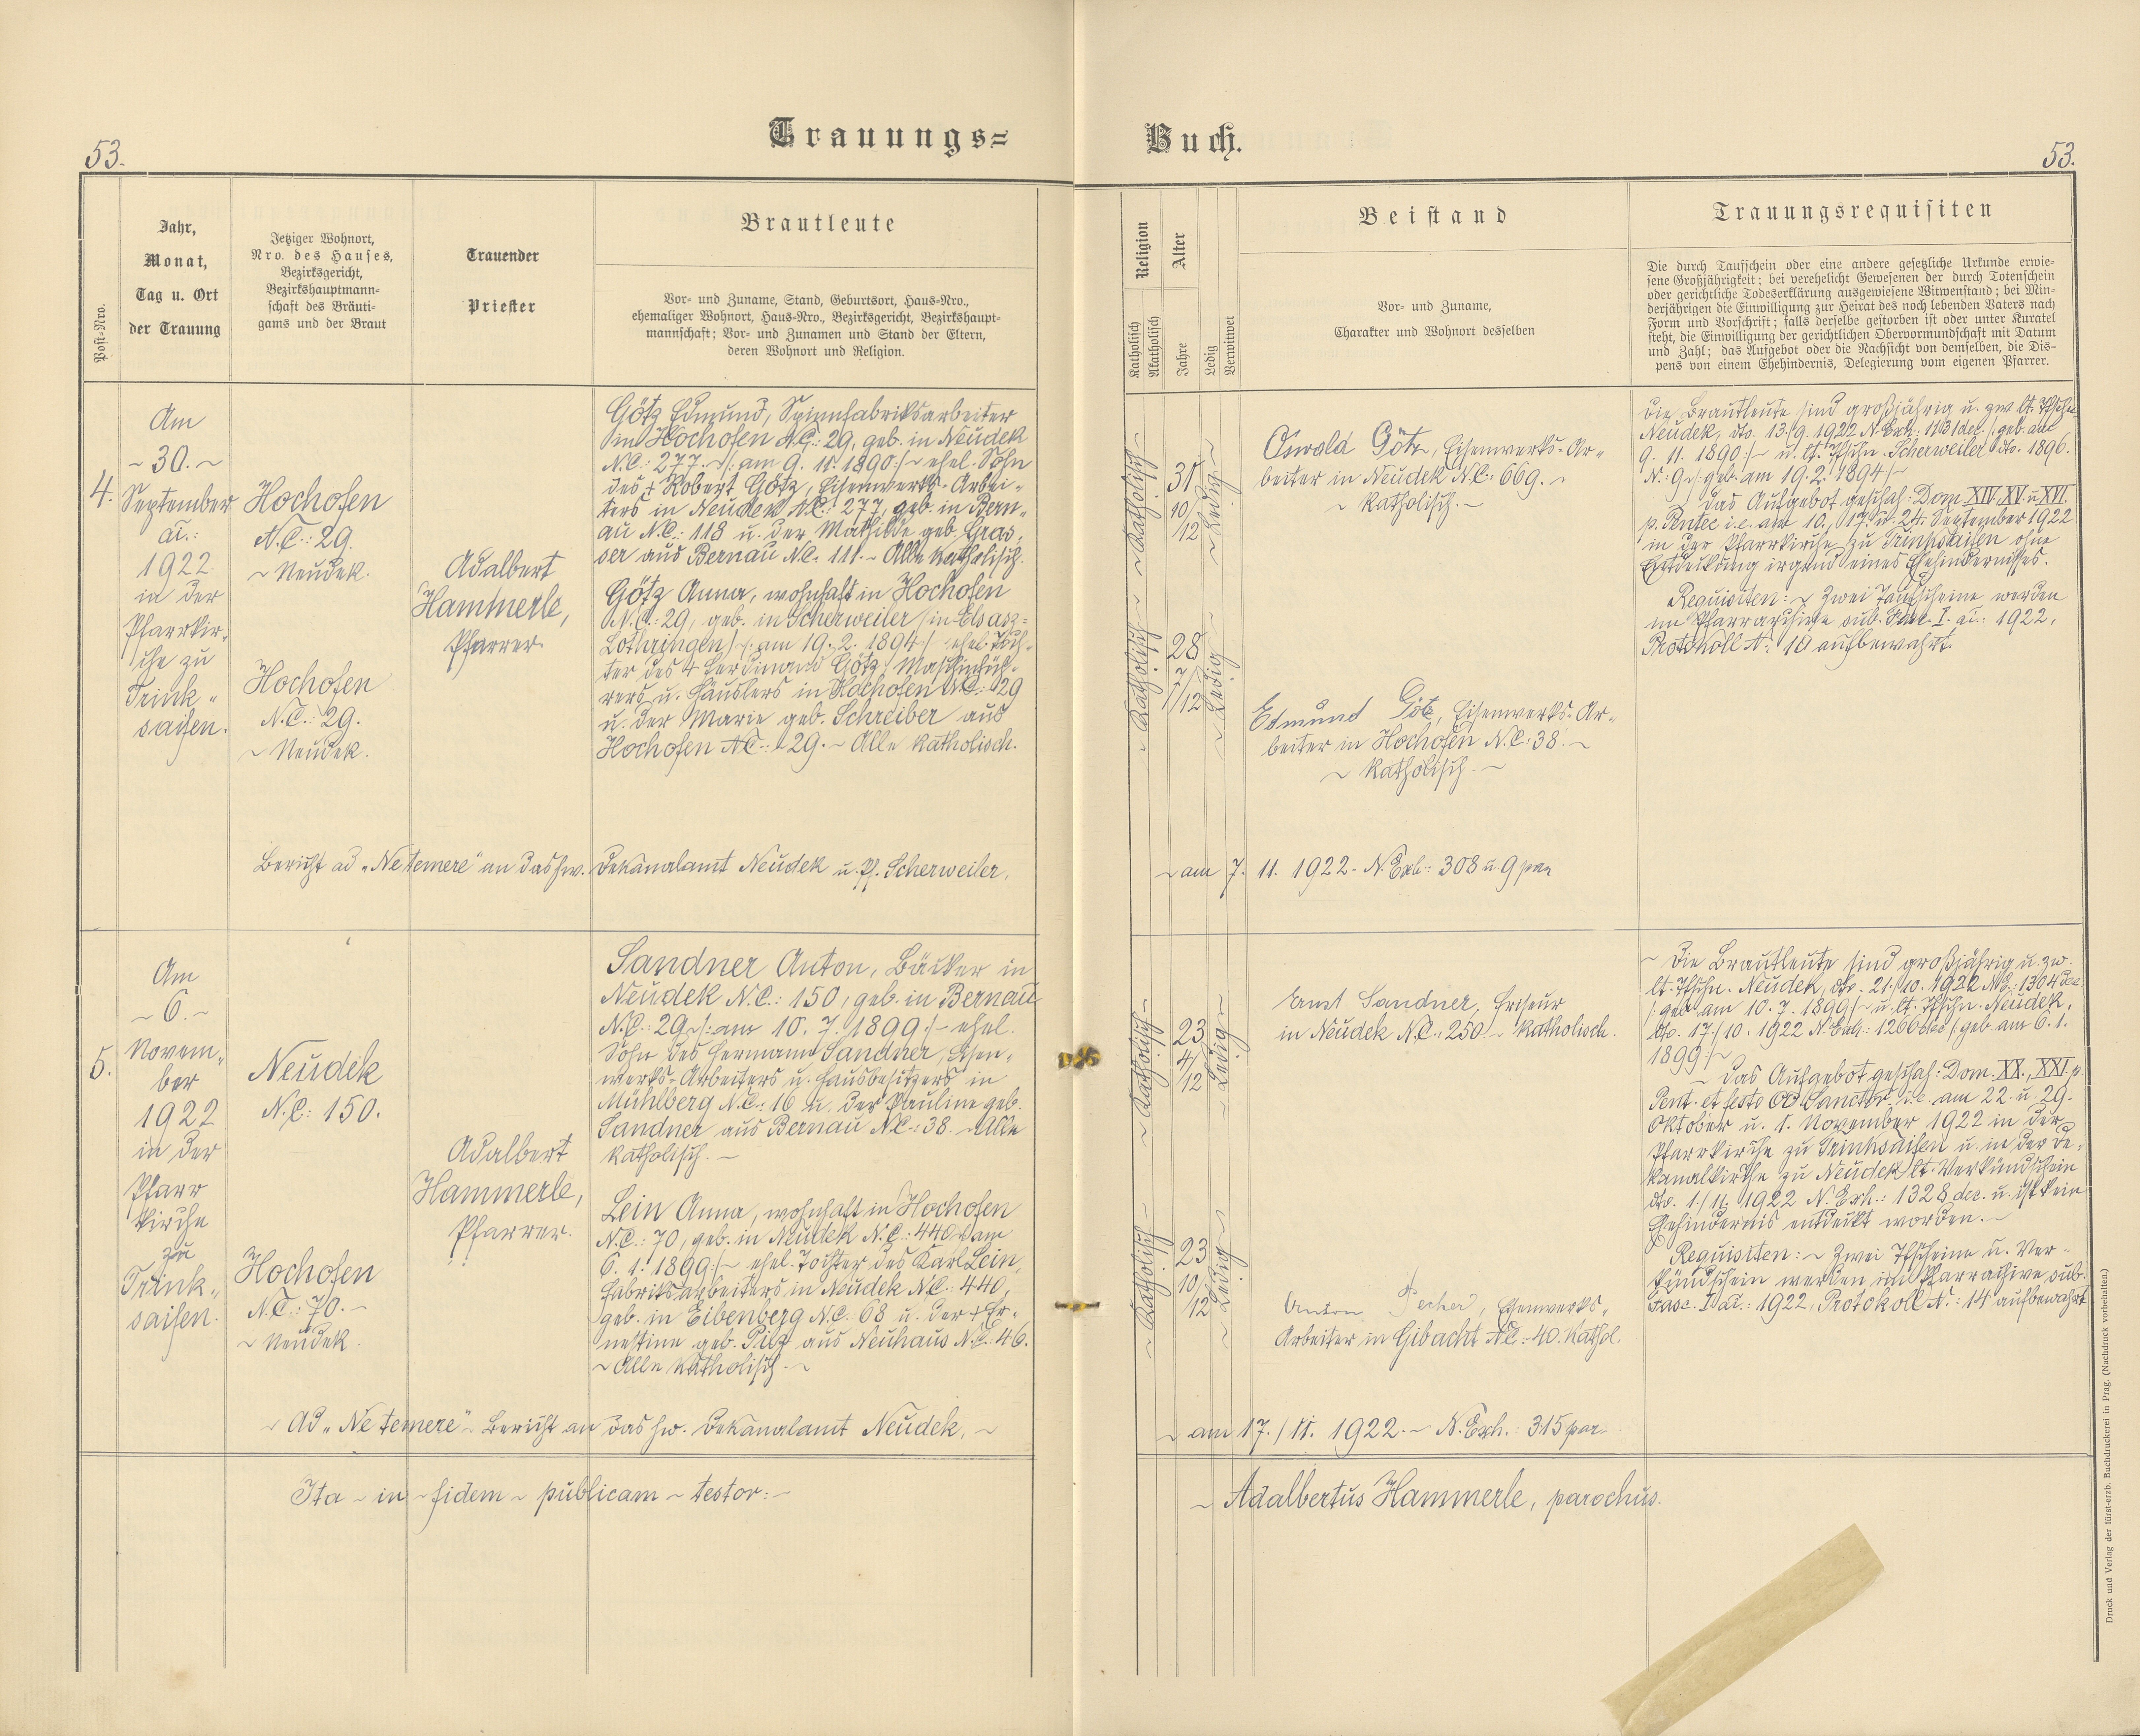 53.
Trauungs=
Jahr,
Monat,
Tag u. Ort
der Trauung
Post-Nro.
Jetziger Wohnort,
Nro. des Hauses,
Bezirksgericht,
Bezirkshauptmann-
schaft des Bräuti-
gams und der Braut
Trauender
Priester
Brautleute
Vor- und Zuname, Stand, Geburtsort, Haus-Nro.,
ehemaliger Wohnort, Haus-Nro., Bezirksgericht, Bezirkshaupt-
mannschaft; Vor- und Zunamen und Stand der Eltern,
deren Wohnort und Religion.
4.
Am
~ 30. ~
September
a.:
1922
in der
Pfarrkir-
che zu
Trink-
saifen.
Hochofen
N.C.: 29.
~ Neudek.
Hochofen
N.C.: 29.
~ Neudek.
Adalbert
Hammerle,
Pfarrer.
Götz Edmund, Spinnfabriksarbeiter
in Hochofen N.C.: 29, geb. in Neudek
N.C.: 277. ~/: am 9. 11. 1890 :/~ ehel. Sohn
des + Robert Götz, Eisenwerks-Arbei-
ters in Neudek N.C.: 277, geb. in Bern-
au N.C.: 118 u. der Mathilde geb. Gras-
ser aus Bernau N.C. 111. ~ Alle katholisch.
Götz Anna, wohnhaft in Hochofen
N.C.: 29, geb. in Scherweiler /in Elsasz-
Lothringen/ /: am 19. 2. 1894 :/ ehel. Toch-
ter des + Ferdinand Götz, Maschinfüh-
rers u. Häuslers in Hochofen N.C.: 29
u. der Marie geb. Schreiber aus
Hochofen N.C.: 29. ~ Alle katholisch.
Bericht ad „Ne temere" an das hw. Dekanalamt Neudek u. Pf. Scherweiler.
5.
Am
~ 6. ~
Novem-
ber
1922
in der
Pfarr
kirche
zu
Trink-
saifen.
Neudek
N.C.: 150.
Hochofen
N.C.: 70. ~
~ Neudek.
Adalbert
Hammerle,
Pfarrer.
Sandner Anton, Bäcker in
Neudek N.C.: 150, geb. in Bernau
N.C.: 29 ~/: am 10. 7. 1899 :/~ ehel.
Sohn des Hermann Sandner, Eisen-
werks-Arbeiters u. Hausbesitzers in
Mühlberg N.C.: 16 u. der Pauline geb.
Sandner aus Bernau N.C.: 38. ~ Alle
katholisch. ~
Lein Anna, wohnhaft in Hochofen
N.C.: 70, geb. in Neudek N.C.: 440 ~ am
6. 1. 1899 :/~ ehel. Tochter des Karl Lein,
Fabriksarbeiters in Neudek N.C.: 440,
geb. in Eibenberg N.C. 68 u. der + Er-
nestine geb. Pilz aus Neuhaus N.C.: 46.
~ Alle katholisch. ~
~ Ad „Ne temere" ~ Bericht an das hw. Dekanalamt Neudek. ~
Ita ~ in ~ fidem ~ publicam ~ testor: ~
Buch.
53.
Religion
Alter
Katholisch
Akatholisch
Jahre
Ledig
Verwitwet
Beistand
Vor- und Zuname,
Charakter und Wohnort desselben
Trauungsrequisiten
Die durch Taufschein oder eine andere gesetzliche Urkunde erwie-
sene Großjährigkeit; bei verehelicht Gewesenen der durch Totenschein
oder gerichtliche Todeserklärung ausgewiesene Witwenstand; bei Min-
derjährigen die Einwilligung zur Heirat des noch lebenden Vaters nach
Form und Vorschrift; falls derselbe gestorben ist oder unter Kuratel
steht, die Einwilligung der gerichtlichen Obervormundschaft mit Datum
und Zahl; das Aufgebot oder die Nachsicht von demselben, die Dis-
pens von einem Ehehindernis, Delegierung vom eigenen Pfarrer.
~ Katholisch ~
31
10/12
~ Ledig ~
~ Katholisch ~
28
7
1/12
~ Ledig ~
Oswald Götz, Eisenwerks-Ar-
beiter in Neudek N.C.: 669. ~
~ Katholisch. ~
Edmund Götz, Eisenwerks-Ar-
beiter in Hochofen N.C.: 38. ~
~ Katholisch. ~
Die Brautleute sind großjährig u. zw. lt. Tfschn.
Neudek, dto. 13./9. 1922 N. Exh.: 1131 dec. /: geb. am
9. 11. 1890 :/~ u. lt. Tfschn. Scherweiler dto. 1896.
N.: 9 ~/: geb. am 19. 2. 1894 /~
Das Aufgebot geschah: Dom. XIV. XV. u. XVI.
p. Pentec i.e. am 10., 17. u. 24. September 1922
in der Pfarrkirche zu Trinksaifen ohne
Entdeckung irgend eines Ehehindernisses.
Requisiten: ~ Zwei Taufscheine werden
im Pfarrarchive sub. Fasc. I. a.: 1922,
Protokoll N.: 10 aufbewahrt.
~ am 7. 11. 1922. N. Exh.: 308 u. 9 par
~ Katholisch ~
23
4/12
~ Ledig ~
~ Katholisch ~
23
10/12
~ Ledig ~
Ernst Sandner, Friseur
in Neudek N.C.: 250. ~ Katholisch.
Anton Pecher, Eisenwerks-
Arbeiter in Gibacht N.C.: 40. Kathol.
~ Die Brautleute sind großjährig u. zw.
lt. Tfschn. Neudek, dto. 21./10. 1922 N.E.: 1304 dec
/: geb. am 10. 7. 1899 /~ u. lt. Tfschn. Neudek,
dto. 17./10. 1922 N. Exh.: 1266 dec /: geb. am 6. 1.
1899 :/~
~ Das Aufgebot geschah: Dom. XX., XXI. p.
Pent. et festo OO. Sanctor. i.e. am 22. u. 29.
Oktober u. 1. November 1922 in der
Pfarrkirche zu Trinksaifen u. in der De-
kanalkirche zu Neudek lt. Verkündschein
dto. 1./11. 1922 N. Exh.: 1328 dec. u. ist kein
Ehehindernis entdeckt worden. ~
Requisiten: ~ Zwei Tfscheine u. Ver-
kündschein werden im Pfarrachive sub.
Fasc. I. a.: 1922, Protokoll N.: 14 aufbewahrt
~ am 17./11. 1922. ~ N. Exh.: 315 par.
~ Adalbertus Hammerle, parochus.
Druck und Verlag der fürst-erzb. Buchdruckerei in Prag. (Nachdruck vorbehalten.)